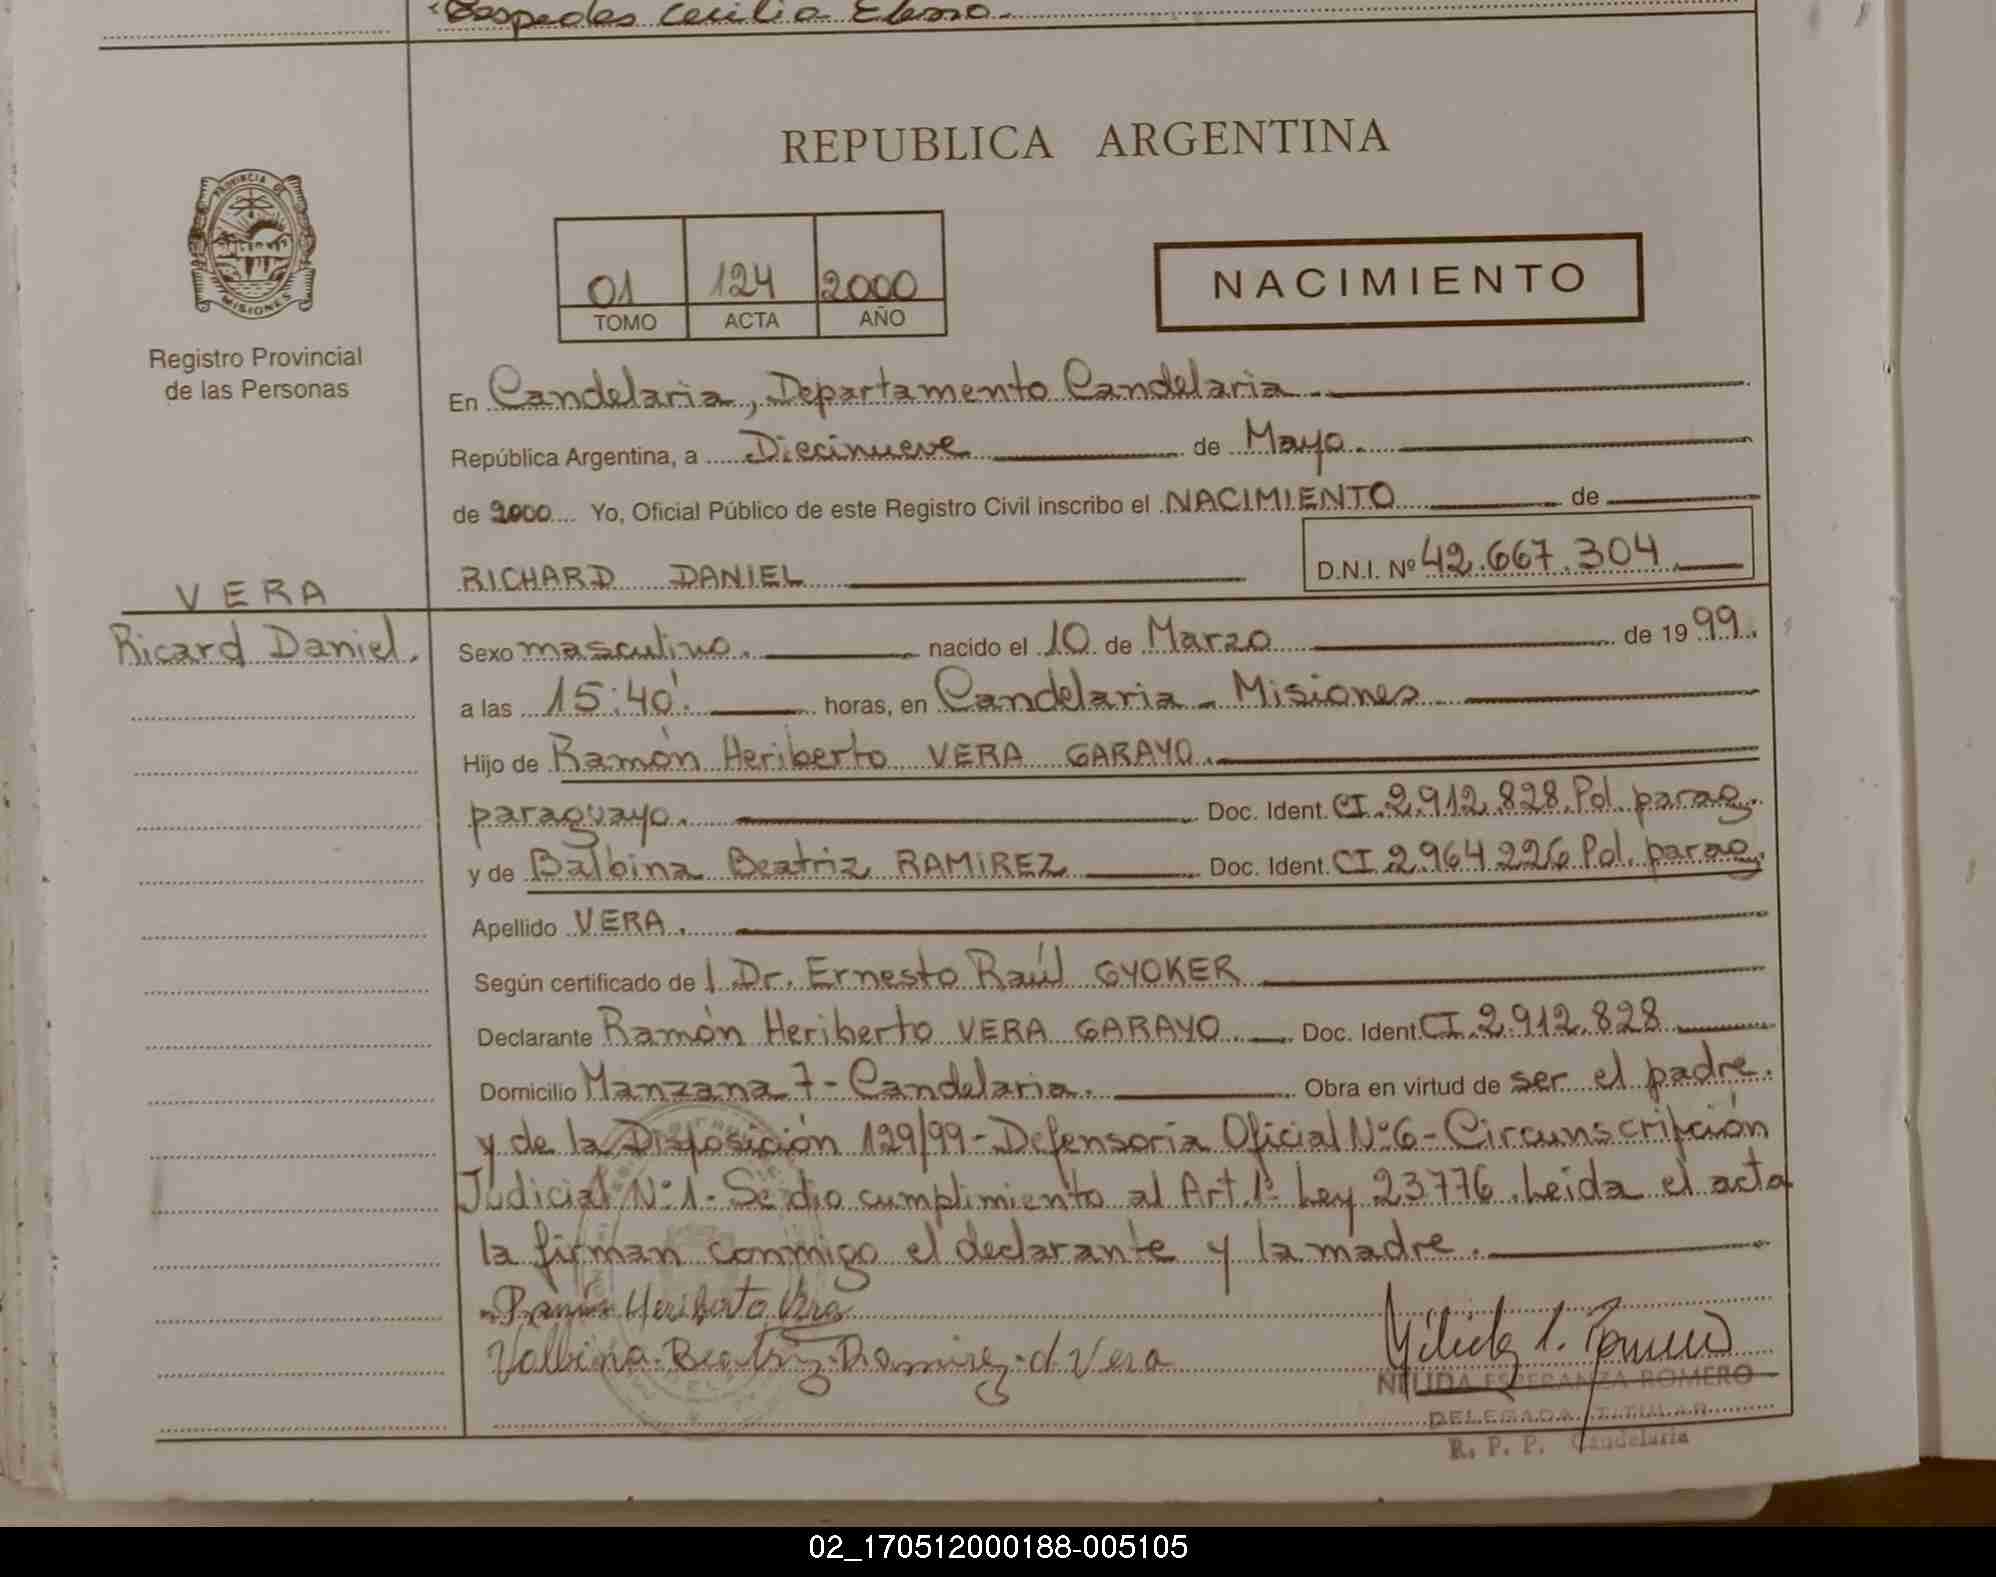 Cespedes Cecilia Elena.
REPUBLICA ARGENTINA
PROVINCIA DE
MISIONES
Registro Provincial
de las Personas
01 124 2000
TOMO ACTA AÑO
NACIMIENTO
En Candelaria, Departamento Candelaria.
República Argentina, a Diecinueve de Mayo.
de 2000 Yo, Oficial Público de este Registro Civil inscribo el NACIMIENTO de
RICHARD DANIEL D.N.I. Nº 42.667.304
VERA
Ricard Daniel.
Sexo masculino. nacido el 10 de Marzo de 1999.
a las 15:40' horas, en Candelaria - Misiones
Hijo de Ramón Heriberto VERA GARAYO.
paraguayo. Doc. Ident. CI.2.912.828.Pol.parag.
y de Balbina Beatriz RAMIREZ Doc. Ident. CI 2.964.226 Pol. parag.
Apellido VERA.
Según certificado de l Dr. Ernesto Raúl GYOKER
Declarante Ramón Heriberto VERA GARAYO. Doc. Ident. CI.2.912.828
Domicilio Manzana 7 - Candelaria. Obra en virtud de ser el padre.
y de la Disposición 129/99 - Defensoría Oficial Nº 6 - Circunscripción
Judicial Nº 1 - Se dio cumplimiento al Art. 1º Ley 23776. Leida el acta
la firman conmigo el declarante y la madre.
Ramón Heriberto Vera
Valbina Beatriz Ramirez d Vera
NELIDA ESPERANZA ROMERO
DELEGADA TITULAR
R. P. P. Candelaria
02_170512000188-005105